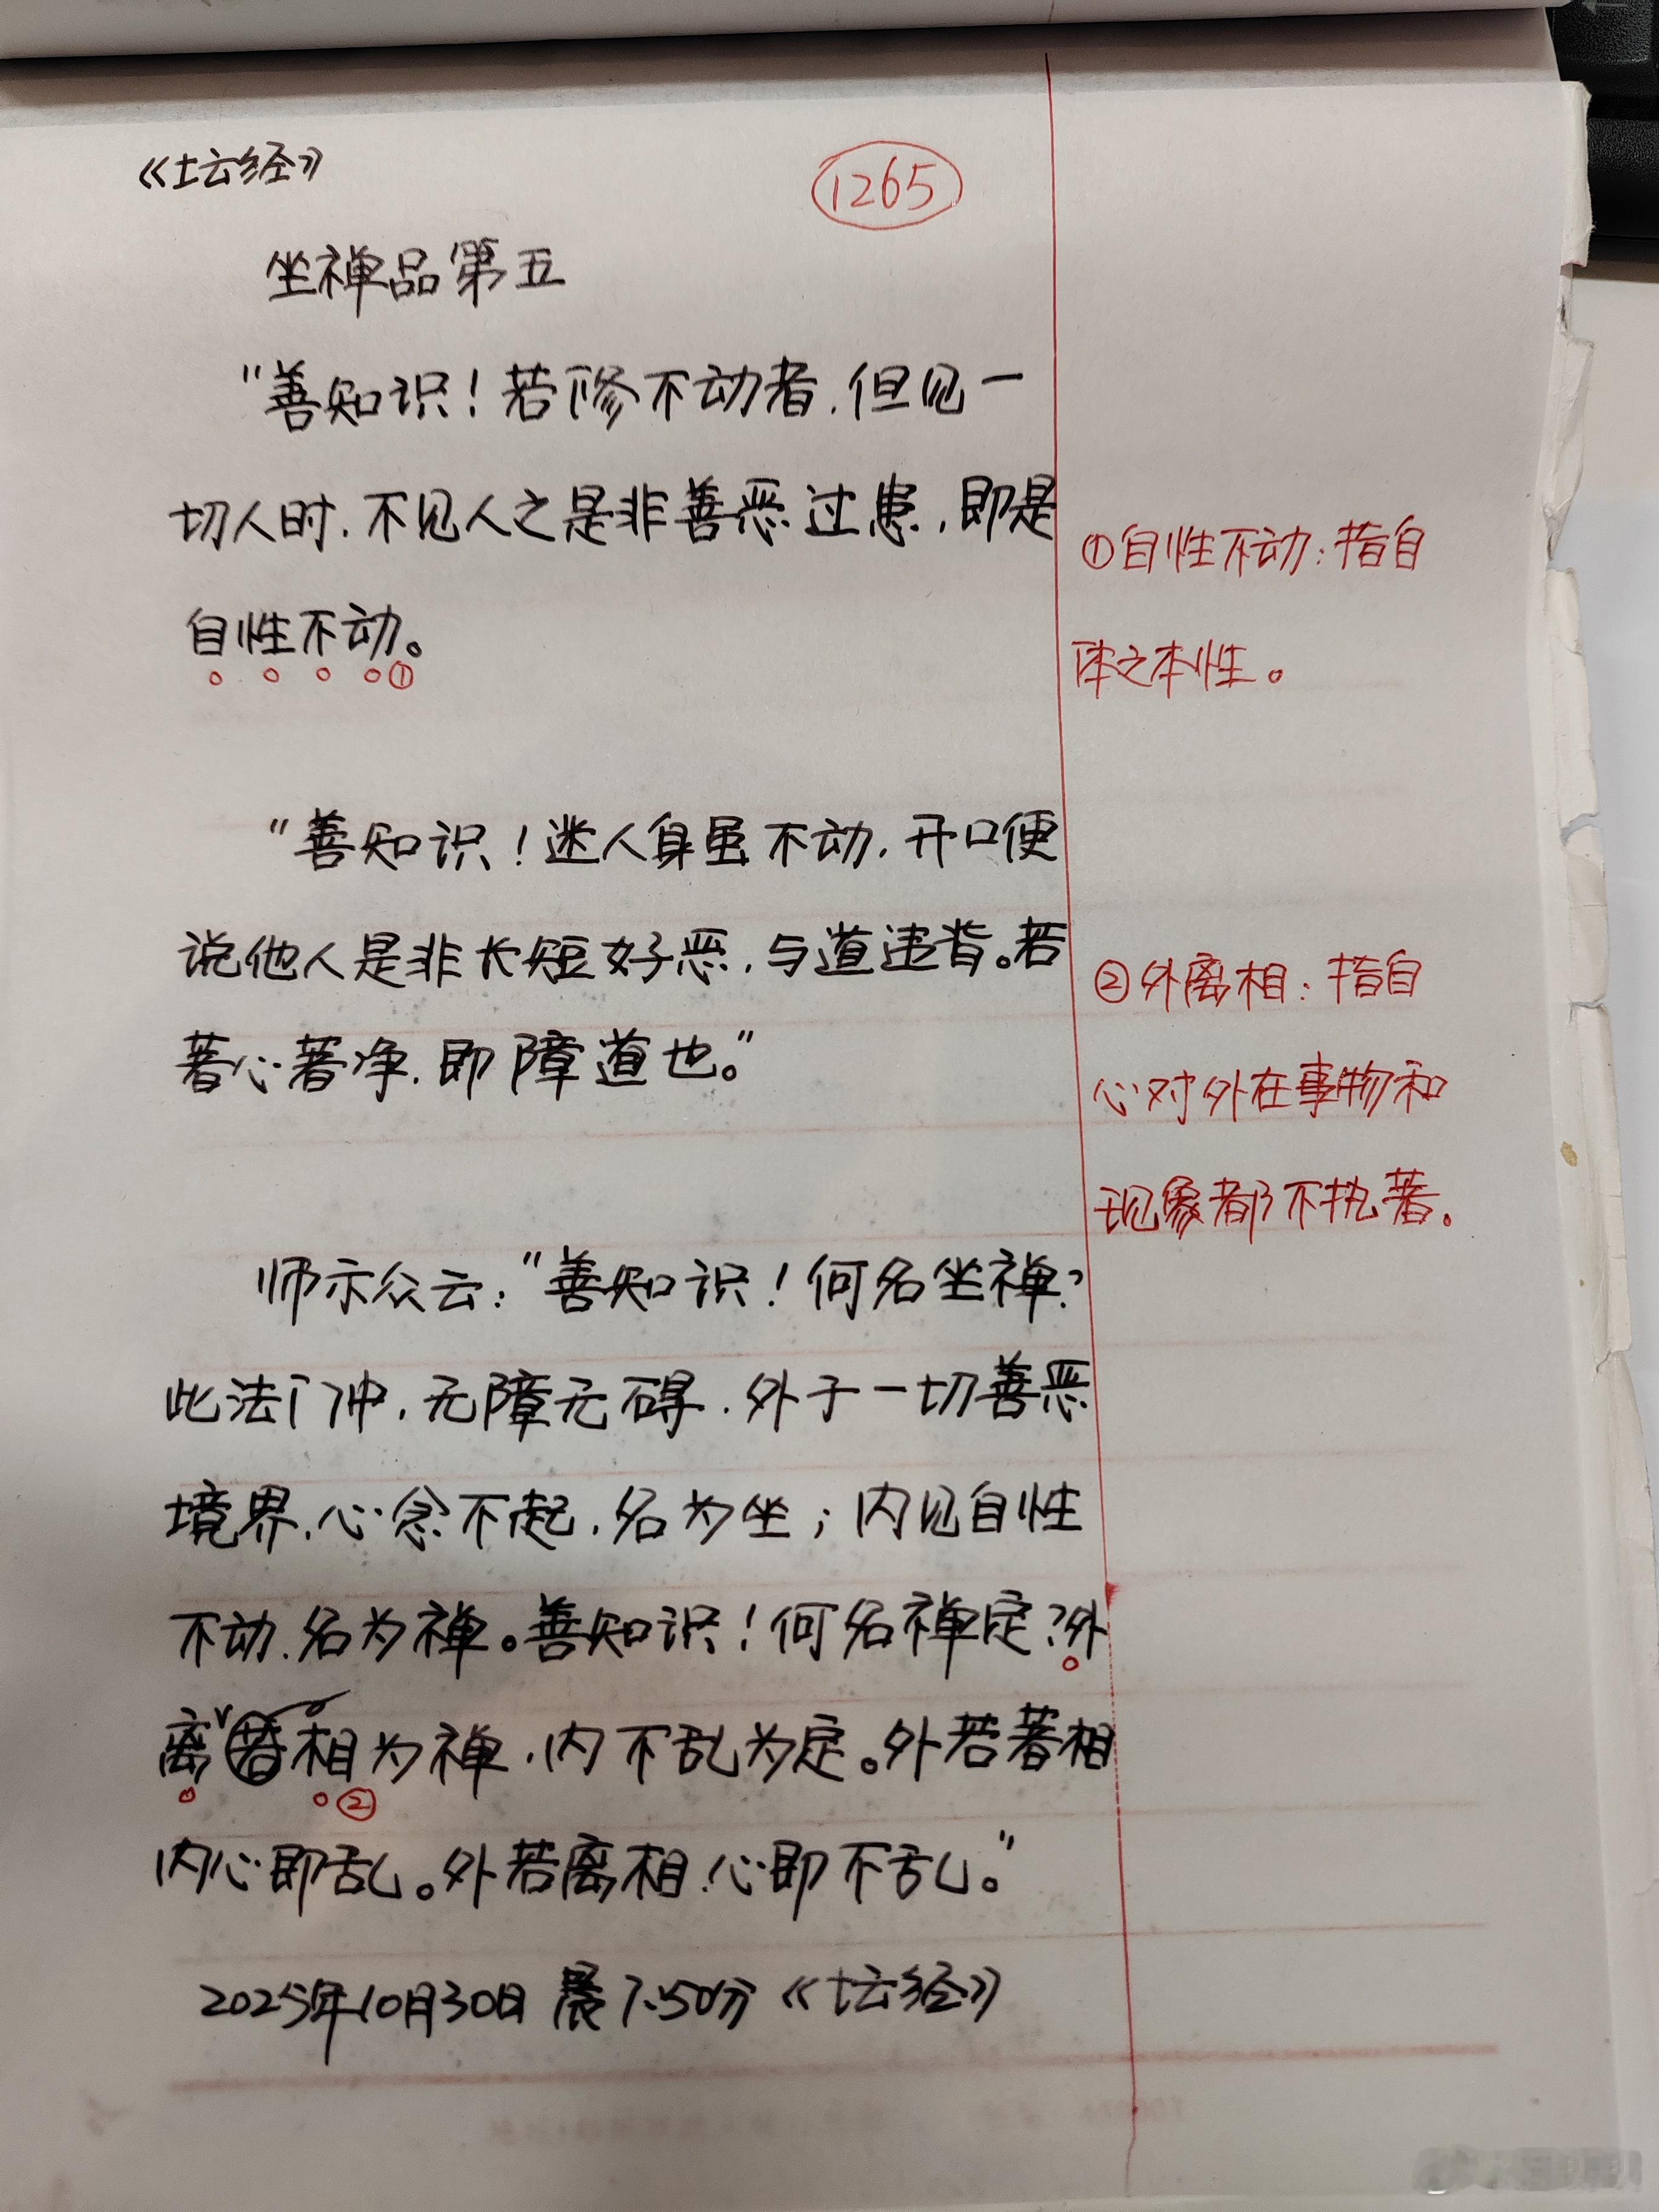 《坛经》
1265
坐禅品第五
“善知识！若修不动者，但见一
切人时，不见人之是非善恶过患，即是
自性不动。①
“善知识！迷人身虽不动，开口便
说他人是非长短好恶，与道违背。若
著心著净，即障道也。”
师示众云：“善知识！何名坐禅？
此法门中，无障无碍，外于一切善恶
境界，心念不起，名为坐；内见自性
不动，名为禅。善知识！何名禅定？外
离相②为禅，内不乱为定。外若著相
内心即乱。外若离相，心即不乱。”
2025年10月30日晨7:50分《坛经》
①自性不动：指自
体之本性。
②外离相：指自
心对外在事物和
现象都不执著。